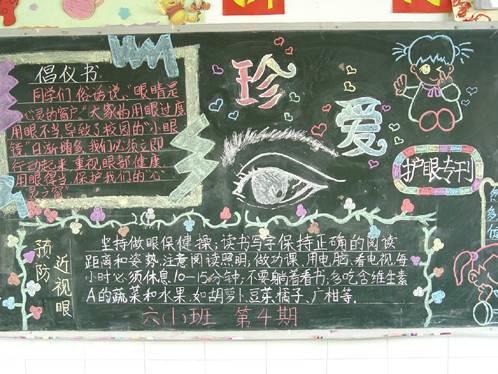 倡仪书
同学们俗话说："眼睛是
心灵的窗户"大家的用眼过度
用眼不当导致了校园的"小眼
镜"日渐增多,我们必须立即
行动起来 重视眼部健康
用眼得当保护我们的"心
灵之窗"
珍
爱
护眼专刊
预防
近视眼
坚持做眼保健操;读书写字保持正确的阅读
距离和姿势.注意阅读照明,做功课、用电脑、看电视.每
小时必须休息10-15分钟,不要躺着看书;多吃含维生素
A的蔬菜和水果.如胡萝卜.豆菜.橘子、广柑等.
六(1)班 第4期